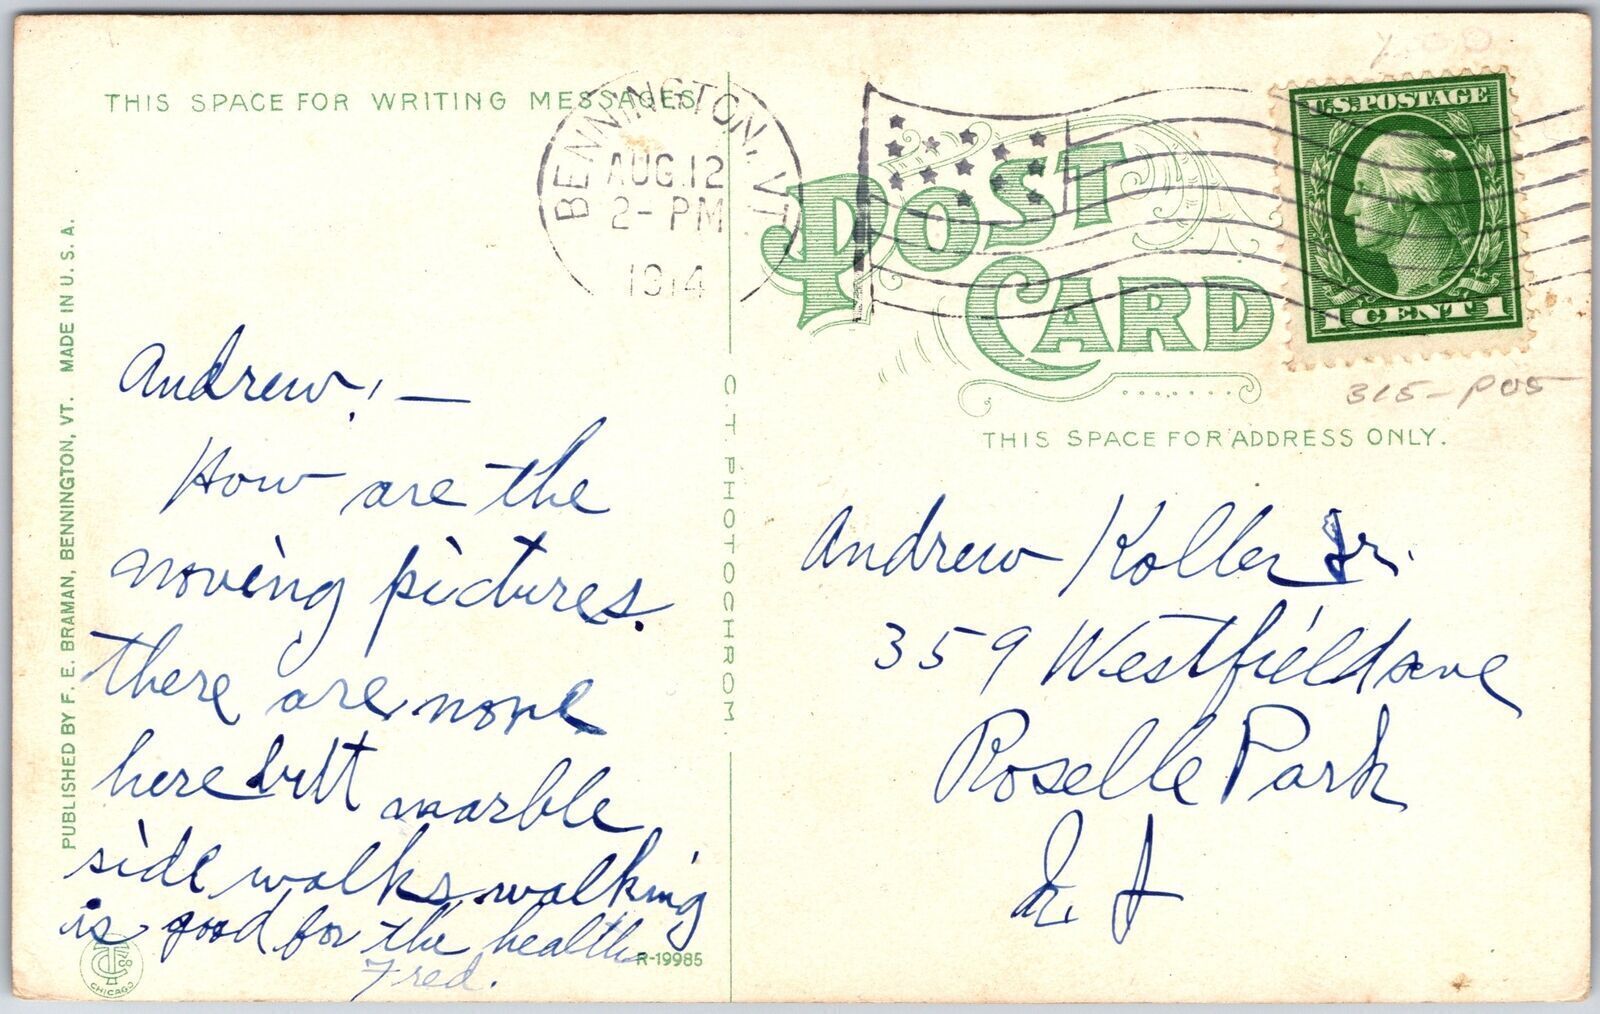 THIS SPACE FOR WRITING MESSAGES
BENNINGTON, VT.
AUG 12
2 - PM
1914
POST
CARD
U.S. POSTAGE
1 CENT 1
315-P05
THIS SPACE FOR ADDRESS ONLY.
PUBLISHED BY F. E. BRAMAN, BENNINGTON, VT. MADE IN U. S. A.
C. T. PHOTOCHROM.
Andrew! —
How are the
moving pictures.
there are none
here butt marble
side walks walking
is good for the health
Fred.
R-19985
CHICAGO
Andrew Koller Jr.
359 Westfield ave
Roselle Park
N. J